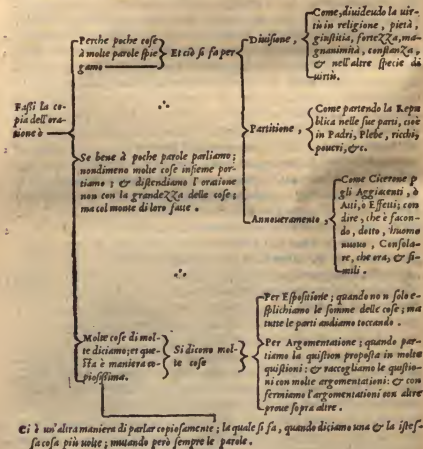 Fassi la co-
pia dell'ora-
tione ò
Perche poche cose
à molte parole spie
gamo
Et ciò si fa per
Diuisione,
Come, diuidendo la uir-
tù in religione, pietà,
giustitia, fortezza, ma-
gnanimità, constanza,
& nell'altre specie di
uirtù.
Partitione,
Come partendo la Repu
blica nelle sue parti, cioè
in Padri, Plebe, ricchi,
poueri, &c.
Annoueramento,
Come Cicerone p
gli Aggiacenti, ò
Atti, o Effetti; con
dire, che è facon-
do, dotto, huomo
nuouo, Consola-
re, che ora, & si-
mili.
Se bene à poche parole parliamo;
nondimeno molte cose insieme por-
tiamo; & distendiamo l'oratione
non con la grandezza delle cose;
ma col monte di loro fatte.
Molte cose di mol-
te diciamo; et que-
sta è maniera co-
piosissima.
Si dicono mol-
te cose
Per Espositione; quando no n solo e-
splichiamo le somme delle cose; ma
tutte le parti andiamo toccando.
Per Argomentatione; quando par-
tiamo la quistion proposta in molte
quistioni: & raccogliamo le quistio-
ni con molte argomentationi: & con
fermiamo l'argomentationi con altre
proue sopra altre.
Ci è un'altra maniera di parlar copiosamente; la quale si fa, quando diciamo una & la istes-
sa cosa più uolte; mutando però sempre le parole.